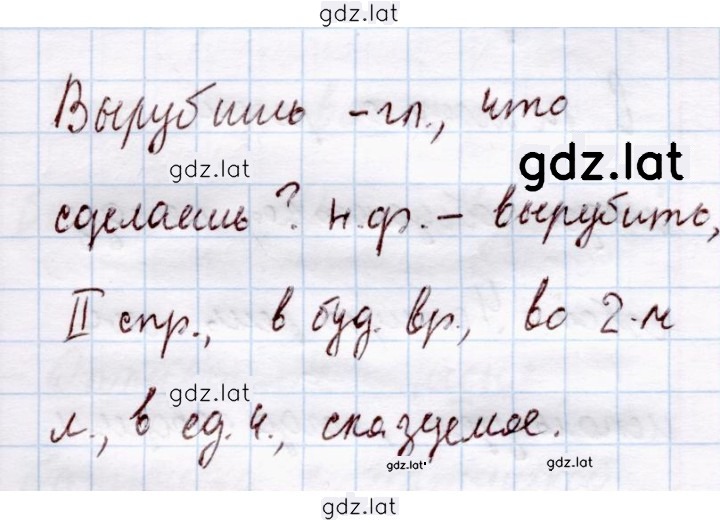 gdz.lat
Вырубишь – гл., что
gdz.lat
gdz.lat
сделаешь? н.ф. – вырубить,
II спр., в буд. вр., во 2-м
gdz.lat
л., в ед. ч., сказуемое.
gdz.lat
gdz.lat
gdz.lat